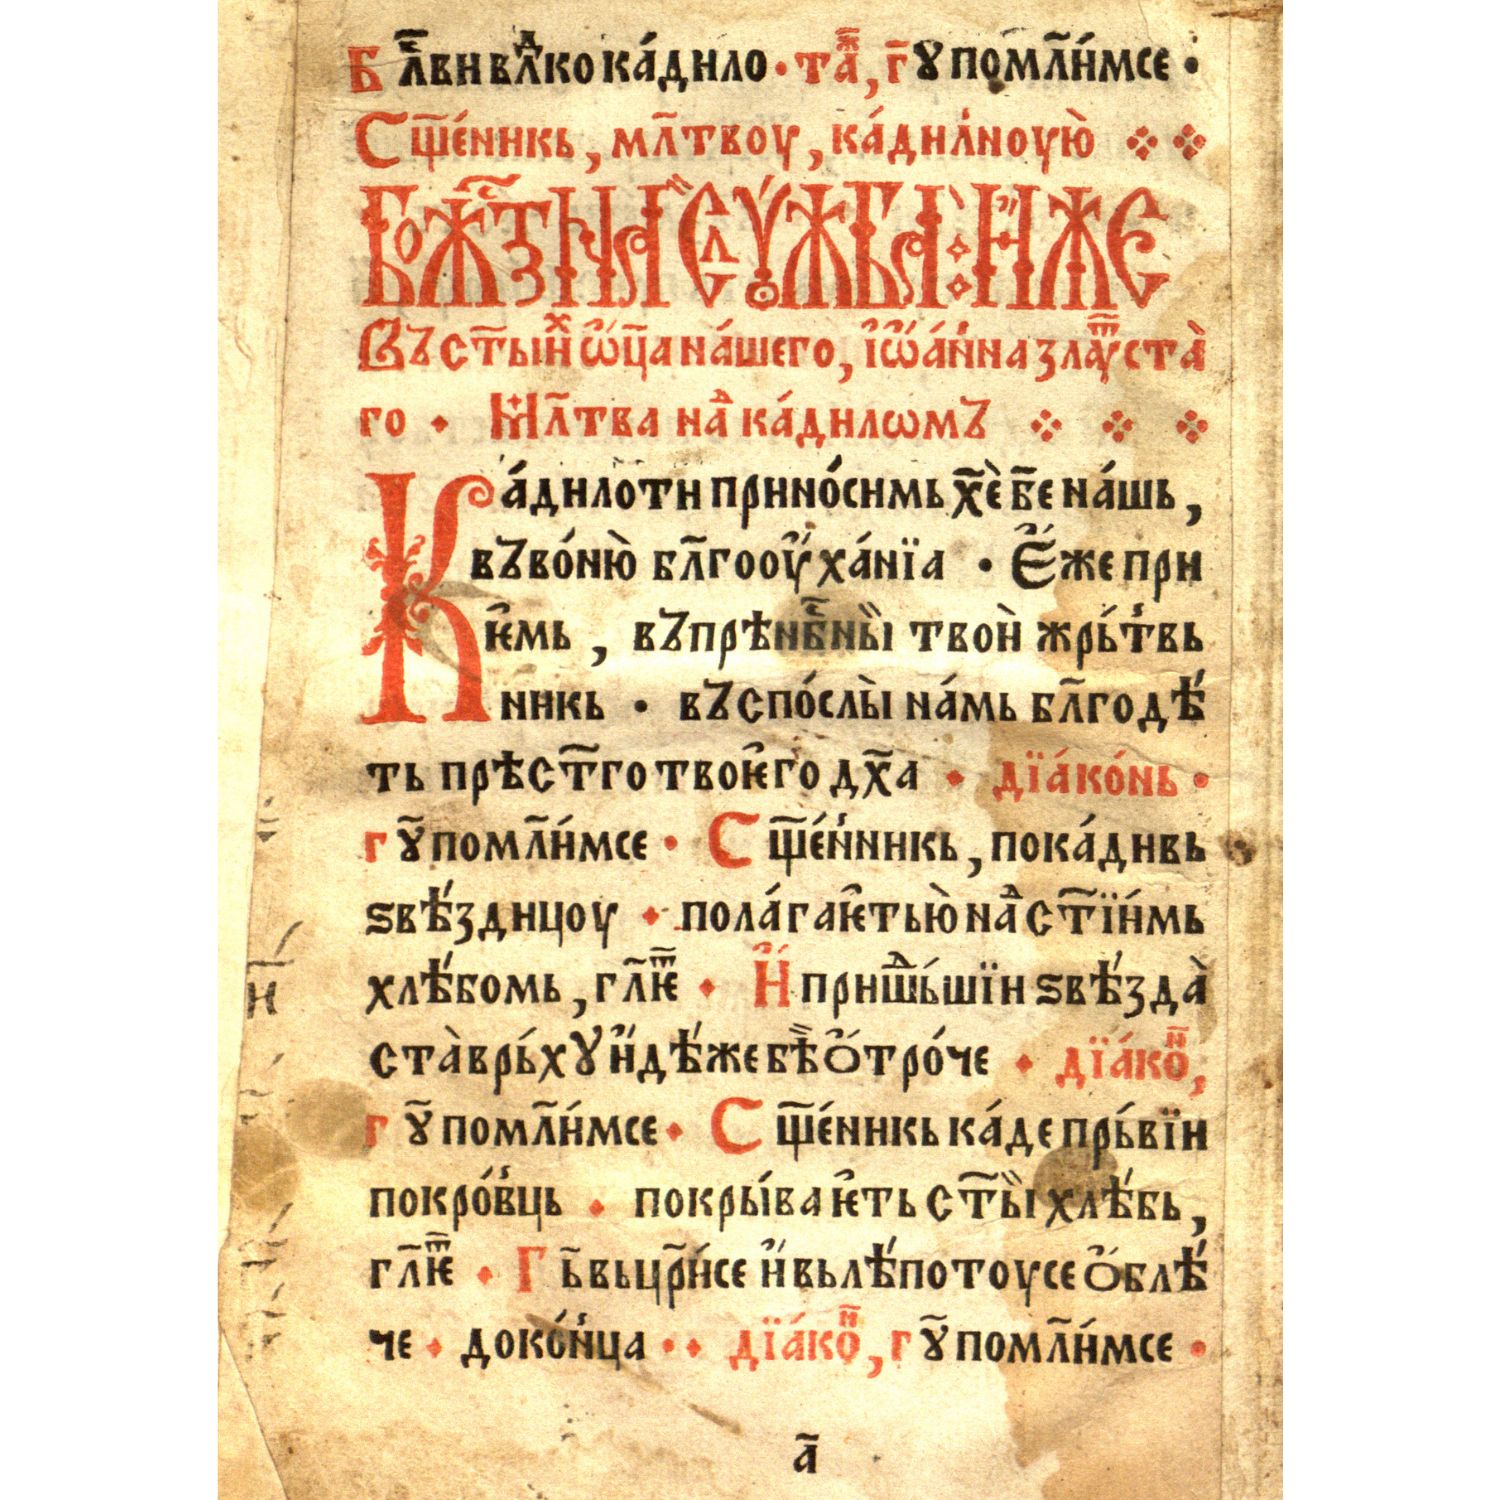 Бл҃ви влⷣко ка́дило · таⷤ, гꙋ҃ помл҃и́мсе ·
Сщ҃е́никь, мл҃твоу, ка́дилноую̀
Бжⷭ҇тзнаа слꙋжба · и҆же
Въ ст҃ы́иⷯ ѡ҆ц҃а на́шего, і҆ѡ҆а́нна злаꙋⷮста̀
го · Мл҃тва наⷣ ка́дилѡмъ
Ка́дило ти прино́симь хе҃ѐ бе҃ на́шь,
въ воню̀ бл҃гооуха́нїа · Е҆́же при
ѥ҆мь, въ прѣнб҃ны̏и твоѝ жрь́твь
никь · въспо́слы̀ на́мь бл҃годѣ́
ть прѣст҃го твоѥ҆го дх҃а · дїа́ко́нь ·
гꙋ҃ помл҃и́мсе · Сщ҃е́нникь, пока́дивь
ѕвѣ́здицоу · пола́гаѥ҆ть ю̀ наⷣ ст҃їи́мь
хлѣ́бомь, гл҃ѥⷮ · И҆ пришⷣь́шїи ѕвѣ́зда̀
ста̀ врь́хꙋ и҆дѣ́же бѣ̏ ѻ҆тро́че · дїа́коⷩ҇,
гꙋ҃ помл҃и́мсе · Сщ҃е́никь каде прь́вїи
покро́вць · покры́ваѥ҆ть ст҃ы̏и хлѣ́бь,
гл҃ѥⷮ · Гь҃ вьцр҃и́се и҆ вь лѣ́потоу се ѻ҆блѣ́
че · до ко́нца · дїа́коⷩ҇, гꙋ҃ помл҃и́мсе ·
а҃